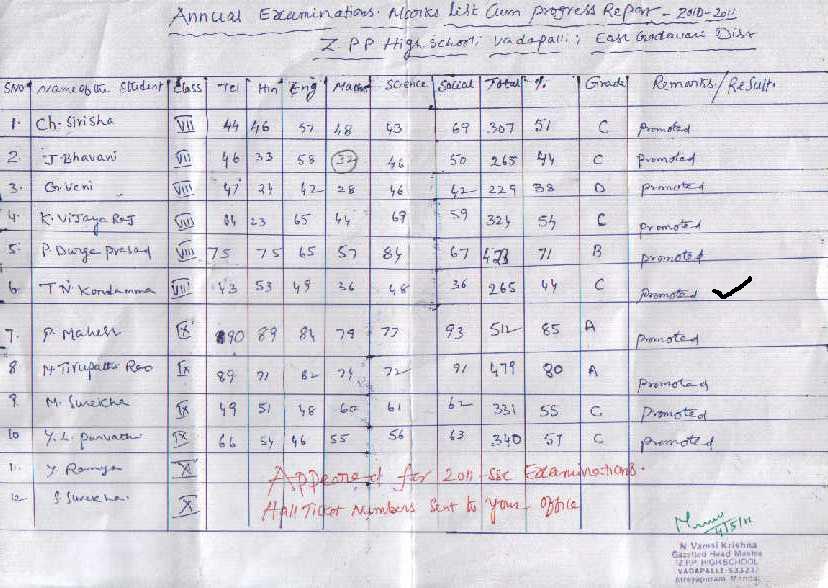 Annual Examinations. Marks List Cum progress Report - 2010-2011
Z PP High school, Vadapalli, East Godavari Dist
SNO Name of the Student Class Tel Hin Eng Maths Science Social Total % Grade Remarks/Result.
1. Ch. Sirisha VII 44 46 57 48 43 69 307 51 C promoted
2 J. Bhavani VII 46 33 58 32 46 50 265 44 C promoted
3. G. Veni VIII 47 24 42 28 46 42 229 38 D promoted
4. K. Vijaya Raj VIII 84 23 65 44 69 59 324 54 C promoted
5. P. Durga prasad VIII 75 75 65 57 84 67 423 71 B promoted
6. T N Kondamma VIII 43 53 49 36 48 36 265 44 C promoted
7. P. Mahesh IX 90 89 84 79 77 93 512 85 A Promoted
8 N Tirupathi Rao IX 89 71 82 74 72 91 479 80 A promoted
9 M. Surekha IX 49 51 48 60 61 62 331 55 C promoted
10 Y. L. parvathi IX 66 54 46 55 56 63 340 57 C promoted
11. Y Ramya X
Appeared for 2011-SSC Examinations.
12 S Surekha. X
Hall Ticket Numbers Sent to Your Office
4/5/11
N Vamsi Krishna
Gazetted Head Master
Z.P.P HIGHSCHOOL
VADAPALLE-533237
Atreyapuram Mandal